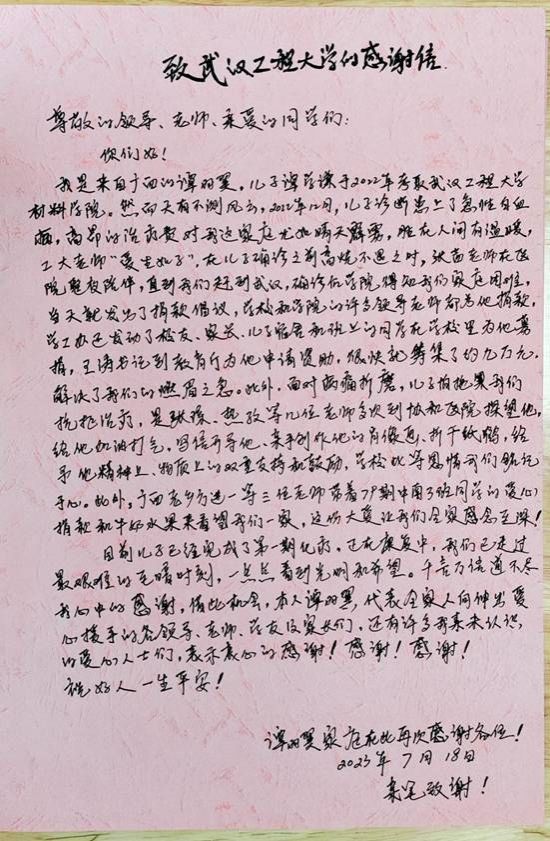 致武汉工程大学的感谢信
尊敬的领导、老师、亲爱的同学们:
你们好!
我是来自广西的谭 儿子谭 于2022年考取武汉工程大学
材料学院。然而天有不测风云,2022年12月,儿子诊断患上了急性白血
病,高昂的治疗费对我这家庭尤如晴天霹雳,胜在人间有温暖,
工大老师“爱生如子”,在儿子确诊之前高烧不退之时,张 老师在医
院整夜陪伴,直到我们赶到武汉,确诊后学院得知我们家庭困难,
当天就发出了捐款倡议,学校和学院的许多领导老师都为他捐款,
学工办还发动了校友、家长、儿子宿舍和班上的同学在学校里为他募
捐,王 书记到教育行为他申请资助,很快就筹集了约九万元,
解决了我们的燃眉之急。此外,面对病痛折磨,儿子怕拖累我们
抗拒治疗,是张 、热孜等几位老师多次到协和医院探望他,
给他加油打气,写信开导他、亲手创作他的肖像画、折千纸鹤,给
予他精神上、物质上的双重支持和鼓励,学校此等恩情我们铭记
于心。此外,广西老乡 一等三位老师带着79期中南3班同学的爱心
捐款和牛奶水果来看望我们一家,这份大爱让我们全家感念至深!
目前儿子已经完成了第一期化疗,正在康复中,我们已走过
最艰难的至暗时刻,一点点看到光明和希望。千言万语道不尽
我心中的感谢,借此机会,本人谭 ,代表全家人向伸出爱
心援手的各领导、老师、学友及家长们,还有许多我素未认识
的爱心人士们,表示衷心的感谢!感谢!感谢!
祝好人一生平安!
谭 家庭在此再次感谢各位!
2023年7月18日
亲笔致谢!